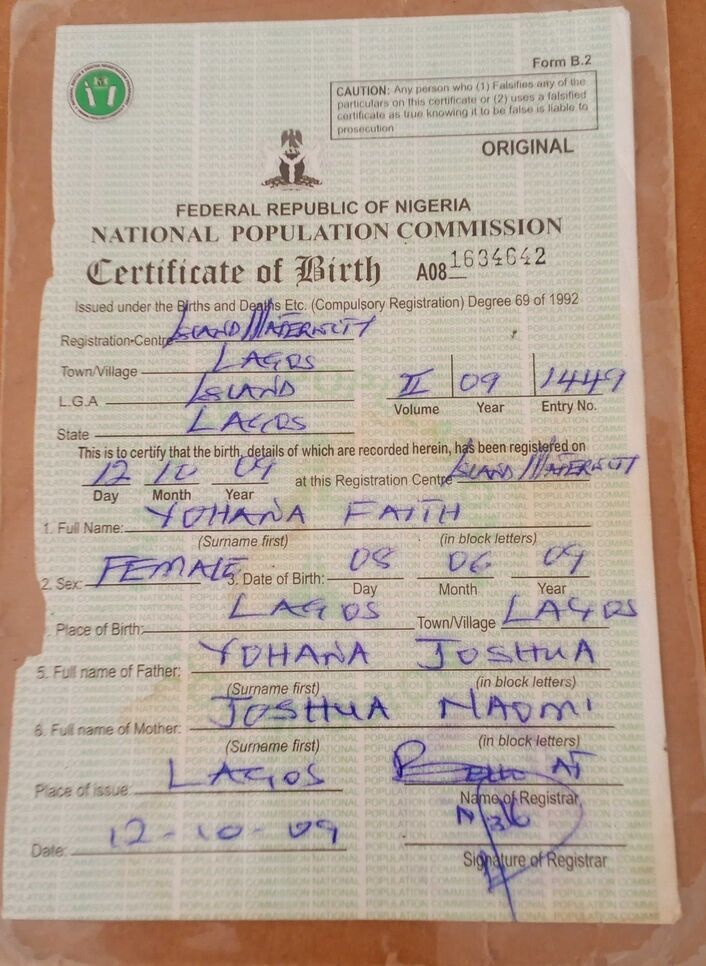 Form B.2
CAUTION: Any person who (1) Falsifies any of the
particulars on this certificate or (2) uses a falsified
certificate as true knowing it to be false is liable to
prosecution
ORIGINAL
FEDERAL REPUBLIC OF NIGERIA
NATIONAL POPULATION COMMISSION
Certificate of Birth A08 1634642
Issued under the Births and Deaths Etc. (Compulsory Registration) Degree 69 of 1992
Registration Centre ISLAND MATERNITY
Town/Village LAGOS
L.G.A ISLAND II 09 1449
Volume Year Entry No.
State LAGOS
This is to certify that the birth, details of which are recorded herein, has been registered on
12 10 09 at this Registration Centre ISLAND MATERNITY
Day Month Year
1. Full Name: YOHANA FAITH
(Surname first) (in block letters)
2. Sex: FEMALE 3. Date of Birth: 08 06 09
Day Month Year
Place of Birth: LAGOS Town/Village LAGOS
5. Full name of Father: YOHANA JOSHUA
(Surname first) (in block letters)
6. Full name of Mother: JOSHUA NAOMI
(Surname first) (in block letters)
Place of issue: LAGOS AT
Name of Registrar
Date: 12-10-09
Signature of Registrar